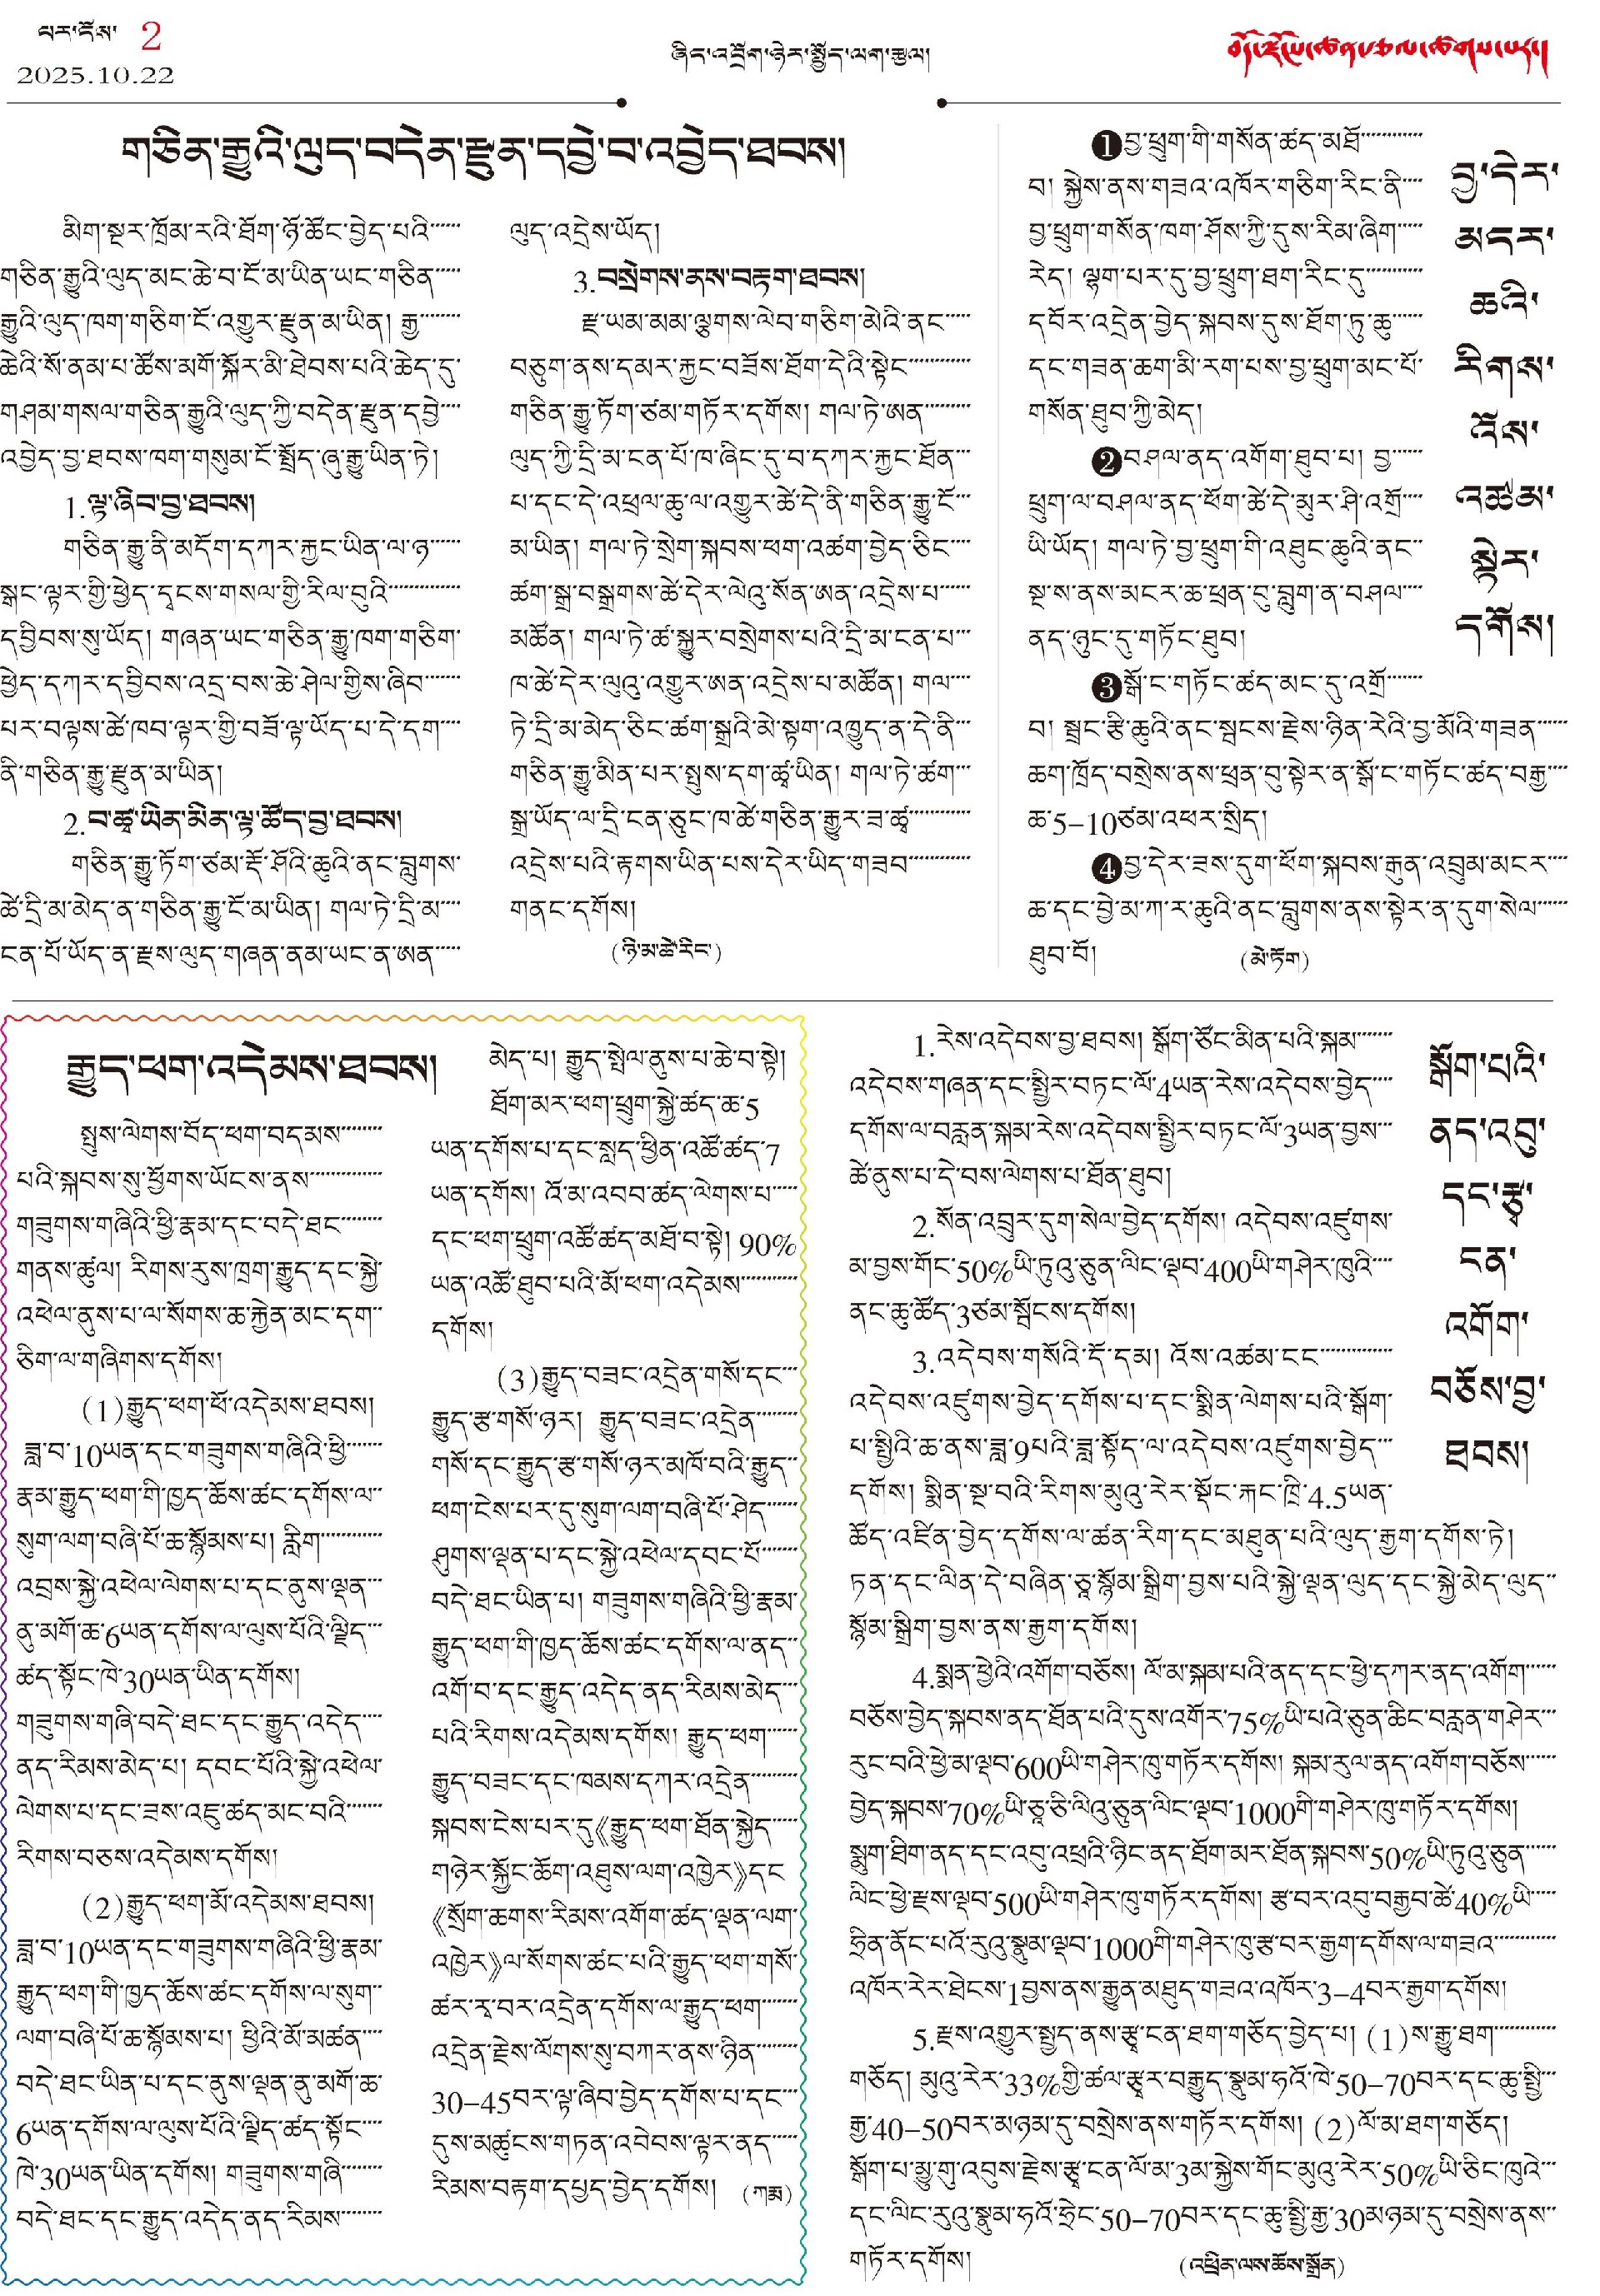 པར་ངོས་ 2
2025.10.22
ཞིང་འབྲོག་ཉེར་སྤྱོད་ལག་རྩལ།
གཅིན་རྒྱུའི་ལུད་བདེན་རྫུན་དབྱེ་བ་འབྱེད་ཐབས།
མིག་སྔར་ཁྲོམ་རའི་ཐོག་ཉོ་ཚོང་བྱེད་པའི་
གཅིན་རྒྱུའི་ལུད་མང་ཆེ་བ་ངོ་མ་ཡིན་ཡང་གཅིན་
རྒྱུའི་ལུད་ཁག་གཅིག་ངོ་འགྱུར་རྫུན་མ་ཡིན། རྒྱ་
ཆེའི་སོ་ནམ་པ་ཚོས་མགོ་སྐོར་མི་ཐེབས་པའི་ཆེད་དུ་
གཤམ་གསལ་གཅིན་རྒྱུའི་ལུད་ཀྱི་བདེན་རྫུན་དབྱེ་
འབྱེད་བྱ་ཐབས་ཁག་གསུམ་ངོ་སྤྲོད་ཞུ་རྒྱུ་ཡིན་ཏེ།
1.ལྟ་ཞིབ་བྱ་ཐབས།
གཅིན་རྒྱུ་ནི་མདོག་དཀར་རྐྱང་ཡིན་ལ་ཉ་
སྒང་ལྟར་གྱི་ཕྱེད་དྭངས་གསལ་གྱི་རིལ་བུའི་
དབྱིབས་སུ་ཡོད། གཞན་ཡང་གཅིན་རྒྱུ་ཁག་གཅིག་
ཕྱེད་དཀར་དབྱིབས་འདྲ་བས་ཆེ་ཤེལ་གྱིས་ཞིབ་
པར་བལྟས་ཚེ་ཁབ་ལྟར་གྱི་བཟོ་ལྟ་ཡོད་པ་དེ་དག་
ནི་གཅིན་རྒྱུ་རྫུན་མ་ཡིན།
2.བ་ཚྭ་ཡིན་མིན་ལྟ་ཚོད་བྱ་ཐབས།
གཅིན་རྒྱུ་ཏོག་ཙམ་རྡོ་ཤོའི་ཆུའི་ནང་བླུགས་
ཚེ་དྲི་མ་མེད་ན་གཅིན་རྒྱུ་ངོ་མ་ཡིན། གལ་ཏེ་དྲི་མ་
ངན་པོ་ཡོད་ན་རྫས་ལུད་གཞན་ནམ་ཡང་ན་ཨན་
ལུད་འདྲེས་ཡོད།
3.བསྲེགས་ནས་བརྟག་ཐབས།
རྫ་ཡམ་མམ་ལྕགས་ལེབ་གཅིག་མེའི་ནང་
བཅུག་ནས་དམར་རྐྱང་བཟོས་ཐོག་དེའི་སྟེང་
གཅིན་རྒྱུ་ཏོག་ཙམ་གཏོར་དགོས། གལ་ཏེ་ཨན་
ལུད་ཀྱི་དྲི་མ་ངན་པོ་ཁ་ཞིང་དུ་བ་དཀར་རྐྱང་ཐོན་
པ་དང་དེ་འཕྲལ་ཆུ་ལ་འགྱུར་ཚེ་དེ་ནི་གཅིན་རྒྱུ་ངོ་
མ་ཡིན། གལ་ཏེ་སྲེག་སྐབས་ཕག་འཚག་བྱེད་ཅིང་
ཚག་སྒྲ་བསྒྲགས་ཚེ་དེར་ལེའུ་སོན་ཨན་འདྲེས་པ་
མཚོན། གལ་ཏེ་ཚ་སྐྱུར་བསྲེགས་པའི་དྲི་མ་ངན་པ་
ཁ་ཚེ་དེར་ལུའུ་འགྱུར་ཨན་འདྲེས་པ་མཚོན། གལ་
ཏེ་དྲི་མ་མེད་ཅིང་ཚག་སྒྲའི་མེ་སྟག་འཁྱུད་ན་དེ་ནི་
གཅིན་རྒྱུ་མིན་པར་སྤུས་དག་ཚྭ་ཡིན། གལ་ཏེ་ཚག་
སྒྲ་ཡོད་ལ་དྲི་ངན་ཅུང་ཁ་ཚེ་གཅིན་རྒྱུར་ཟ་ཚྭ་
འདྲེས་པའི་རྟགས་ཡིན་པས་དེར་ཡིད་གཟབ་
གནང་དགོས།
(ཉི་མ་ཚེ་རིང་)
བྱ་དེར་
མངར་
ཆའི་
རིགས་
འོས་
འཚམ་
སྟེར་
དགོས།
❶བྱ་ཕྲུག་གི་གསོན་ཚད་མཐོ་
བ། སྐྱེས་ནས་གཟའ་འཁོར་གཅིག་རིང་ནི་
བྱ་ཕྲུག་གསོན་ཁག་ཤོས་ཀྱི་དུས་རིམ་ཞིག་
རེད། ལྷག་པར་དུ་བྱ་ཕྲུག་ཐག་རིང་དུ་
དབོར་འདྲེན་བྱེད་སྐབས་དུས་ཐོག་ཏུ་ཆུ་
དང་གཟན་ཆག་མི་རག་པས་བྱ་ཕྲུག་མང་པོ་
གསོན་ཐུབ་ཀྱི་མེད།
❷བཤལ་ནད་འགོག་ཐུབ་པ། བྱ་
ཕྲུག་ལ་བཤལ་ནད་ཕོག་ཚེ་དེ་མུར་ཤི་འགྲོ་
ཡི་ཡོད། གལ་ཏེ་བྱ་ཕྲུག་གི་འཐུང་ཆུའི་ནང་
སྔ་ས་ནས་མངར་ཆ་ཕྲན་བུ་བླུག་ན་བཤལ་
ནད་ཉུང་དུ་གཏོང་ཐུབ།
❸སྒོ་ང་གཏོང་ཚད་མང་དུ་འགྲོ་
བ། སྦྲང་རྩི་ཆུའི་ནང་སྦངས་རྗེས་ཉིན་རེའི་བྱ་མོའི་གཟན་
ཆག་ཁྲོད་བསྲེས་ནས་ཕྲན་བུ་སྟེར་ན་སྒོ་ང་གཏོང་ཚད་བརྒྱ་
ཆ་5–10ཙམ་འཕར་སྲིད།
❹བྱ་དེར་ཟས་དུག་ཕོག་སྐབས་རྒུན་འབྲུམ་མངར་
ཆ་དང་བྱེ་མ་ཀ་ར་ཆུའི་ནང་བླུགས་ནས་སྟེར་ན་དུག་སེལ་
ཐུབ་བོ།
(མེ་ཏོག)
རྒྱུད་ཕག་འདེམས་ཐབས།
སྤུས་ལེགས་བོད་ཕག་བདམས་
པའི་སྐབས་སུ་ཕྱོགས་ཡོངས་ནས་
གཟུགས་གཞིའི་ཕྱི་རྣམ་དང་བདེ་ཐང་
གནས་ཚུལ། རིགས་རུས་ཁྲག་རྒྱུད་དང་སྐྱེ་
འཕེལ་ནུས་པ་ལ་སོགས་ཆ་རྐྱེན་མང་དག་
ཅིག་ལ་གཞིགས་དགོས།
(1)རྒྱུད་ཕག་ཕོ་འདེམས་ཐབས།
ཟླ་བ་10ཡན་དང་གཟུགས་གཞིའི་ཕྱི་
རྣམ་རྒྱུད་ཕག་གི་ཁྱད་ཆོས་ཚང་དགོས་ལ་
སུག་ལག་བཞི་པོ་ཆ་སྙོམས་པ། རླིག་
འབྲས་སྐྱེ་འཕེལ་ལེགས་པ་དང་ནུས་ལྡན་
ནུ་མགོ་ཆ་6ཡན་དགོས་ལ་ལུས་པོའི་ལྗིད་
ཚད་སྟོང་ཁེ་30ཡན་ཡིན་དགོས།
གཟུགས་གཞི་བདེ་ཐང་དང་རྒྱུད་འདེད་
ནད་རིམས་མེད་པ། དབང་པོའི་སྐྱེ་འཕེལ་
ལེགས་པ་དང་ཟས་འཇུ་ཚད་མང་བའི་
རིགས་བཅས་འདེམས་དགོས།
(2)རྒྱུད་ཕག་མོ་འདེམས་ཐབས།
ཟླ་བ་10ཡན་དང་གཟུགས་གཞིའི་ཕྱི་རྣམ་
རྒྱུད་ཕག་གི་ཁྱད་ཆོས་ཚང་དགོས་ལ་སུག་
ལག་བཞི་པོ་ཆ་སྙོམས་པ། ཕྱིའི་མོ་མཚན་
བདེ་ཐང་ཡིན་པ་དང་ནུས་ལྡན་ནུ་མགོ་ཆ་
6ཡན་དགོས་ལ་ལུས་པོའི་ལྗིད་ཚད་སྟོང་
ཁེ་30ཡན་ཡིན་དགོས། གཟུགས་གཞི་
བདེ་ཐང་དང་རྒྱུད་འདེད་ནད་རིམས་
མེད་པ། རྒྱུད་སྤེལ་ནུས་པ་ཆེ་བ་སྟེ།
ཐོག་མར་ཕག་ཕྲུག་སྐྱེ་ཚད་ཆ་5
ཡན་དགོས་པ་དང་སླད་ཕྱིན་འཚོ་ཚད་7
ཡན་དགོས། འོ་མ་འབབ་ཚད་ལེགས་པ་
དང་ཕག་ཕྲུག་འཚོ་ཚད་མཐོ་བ་སྟེ། 90%
ཡན་འཚོ་ཐུབ་པའི་མོ་ཕག་འདེམས་
དགོས།
(3)རྒྱུད་བཟང་འདྲེན་གསོ་དང་
རྒྱུད་རྩ་གསོ་ཉར། རྒྱུད་བཟང་འདྲེན་
གསོ་དང་རྒྱུད་རྩ་གསོ་ཉར་མཁོ་བའི་རྒྱུད་
ཕག་ངེས་པར་དུ་སུག་ལག་བཞི་པོ་ཤེད་
ཤུགས་ལྡན་པ་དང་སྐྱེ་འཕེལ་དབང་པོ་
བདེ་ཐང་ཡིན་པ། གཟུགས་གཞིའི་ཕྱི་རྣམ་
རྒྱུད་ཕག་གི་ཁྱད་ཆོས་ཚང་དགོས་ལ་ནད་
འགོ་བ་དང་རྒྱུད་འདེད་ནད་རིམས་མེད་
པའི་རིགས་འདེམས་དགོས། རྒྱུད་ཕག་
རྒྱུད་བཟང་དང་ཁམས་དཀར་འདྲེན་
སྐབས་ངེས་པར་དུ《རྒྱུད་ཕག་ཐོན་སྐྱེད་
གཉེར་སྐྱོང་ཆོག་འཐུས་ལག་འཁྱེར》དང་
《སྲོག་ཆགས་རིམས་འགོག་ཚད་ལྡན་ལག་
འཁྱེར》ལ་སོགས་ཚང་པའི་རྒྱུད་ཕག་གསོ་
ཚར་རྭ་བར་འདྲེན་དགོས་ལ་རྒྱུད་ཕག་
འདྲེན་རྗེས་ལོགས་སུ་བཀར་ནས་ཉིན་
30–45བར་ལྟ་ཞིབ་བྱེད་དགོས་པ་དང་
དུས་མཚུངས་གཏན་འབེབས་ལྟར་ནད་
རིམས་བརྟག་དཔྱད་བྱེད་དགོས། (ཀརྨ)
སྒོག་པའི་
ནད་འབུ་
དང་རྩྭ་
ངན་
འགོག་
བཅོས་བྱ་
ཐབས།
1.རེས་འདེབས་བྱ་ཐབས། སྒོག་ཙོང་མིན་པའི་སྐམ་
འདེབས་གཞན་དང་སྤྱིར་བཏང་ལོ་4ཡན་རེས་འདེབས་བྱེད་
དགོས་ལ་བརླན་སྐམ་རེས་འདེབས་སྤྱིར་བཏང་ལོ་3ཡན་བྱས་
ཚེ་ནུས་པ་དེ་བས་ལེགས་པ་ཐོན་ཐུབ།
2.སོན་འབྲུར་དུག་སེལ་བྱེད་དགོས། འདེབས་འཛུགས་
མ་བྱས་གོང་50%ཡི་ཏུའུ་ཅུན་ལིང་ལྡབ་400ཡི་གཤེར་ཁུའི་
ནང་ཆུ་ཚོད་3ཙམ་སྦོངས་དགོས།
3.འདེབས་གསོའི་དོ་དམ། འོས་འཚམ་ངང་
འདེབས་འཛུགས་བྱེད་དགོས་པ་དང་སྨིན་ལེགས་པའི་སྒོག་
པ་སྤྱིའི་ཆ་ནས་ཟླ་9པའི་ཟླ་སྟོད་ལ་འདེབས་འཛུགས་བྱེད་
དགོས། སྨིན་སྔ་བའི་རིགས་མུའུ་རེར་སྡོང་རྐང་ཁྲི་4.5ཡན་
ཚོད་འཛིན་བྱེད་དགོས་ལ་ཚན་རིག་དང་མཐུན་པའི་ལུད་རྒྱག་དགོས་ཏེ།
ཏན་དང་ལིན་དེ་བཞིན་ཅཱ་སྙོམ་སྒྲིག་བྱས་པའི་སྐྱེ་ལྡན་ལུད་དང་སྐྱེ་མེད་ལུད་
སྙོམ་སྒྲིག་བྱས་ནས་རྒྱག་དགོས།
4.སྨན་ཕྱེའི་འགོག་བཅོས། ལོ་མ་སྐམ་པའི་ནད་དང་ཕྱེ་དཀར་ནད་འགོག་
བཅོས་བྱེད་སྐབས་ནད་ཐོན་པའི་དུས་འགོར་75%ཡི་པའེ་ཅུན་ཆིང་བརླན་གཤེར་
རུང་བའི་ཕྱེ་མ་ལྡབ་600ཡི་གཤེར་ཁུ་གཏོར་དགོས། སྐམ་རུལ་ནད་འགོག་བཅོས་
བྱེད་སྐབས་70%ཡི་ཅཱ་ཅི་ལིའུ་ཅུན་ལིང་ལྡབ་1000གི་གཤེར་ཁུ་གཏོར་དགོས།
སྨུག་ཐིག་ནད་དང་འབུ་འཕྲའི་ཉིང་ནད་ཐོག་མར་ཐོན་སྐབས་50%ཡི་ཏུའུ་ཅུན་
ལིང་ཕྱེ་རྫས་ལྡབ་500ཡི་གཤེར་ཁུ་གཏོར་དགོས། རྩ་བར་འབུ་བརྒྱབ་ཚེ་40%ཡི་
ཧྲིན་ནོང་པའོ་རུའུ་སྣུམ་ལྡབ་1000གི་གཤེར་ཁུ་རྩ་བར་རྒྱག་དགོས་ལ་གཟའ་
འཁོར་རེར་ཐེངས་1བྱས་ནས་རྒྱུན་མཐུད་གཟའ་འཁོར་3–4བར་རྒྱག་དགོས།
5.རྫས་འགྱུར་སྤྱད་ནས་རྩྭ་ངན་ཐག་གཅོད་བྱེད་པ། (1)ས་རྒྱུ་ཐག་
གཅོད། མུའུ་རེར་33%གྱི་ཚལ་རྩྭར་བརྒྱུད་སྣུམ་ཧའོ་ཁེ་50–70བར་དང་ཆུ་སྤྱི་
རྒྱ་40–50བར་མཉམ་དུ་བསྲེས་ནས་གཏོར་དགོས། (2)ལོ་མ་ཐག་གཅོད།
སྒོག་པ་མྱུ་གུ་འབུས་རྗེས་རྩྭ་ངན་ལོ་མ་3མ་སྐྱེས་གོང་མུའུ་རེར་50%ཡི་ཅིང་ཁུའེ་
དང་ལིང་རུའུ་སྣུམ་ཧའོ་ཧྲེང་50–70བར་དང་ཆུ་སྤྱི་རྒྱ་30མཉམ་དུ་བསྲེས་ནས་
གཏོར་དགོས།
(འཕྲིན་ལས་ཆོས་སྒྲོན)